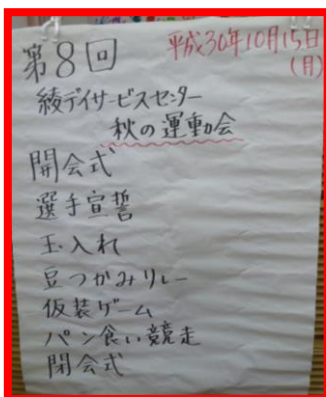 第8回
平成30年10月15日
(月)
綾デイサービスセンター
秋の運動会
開会式
選手宣誓
玉入れ
豆つかみリレー
仮装ゲーム
パン食い競走
閉会式